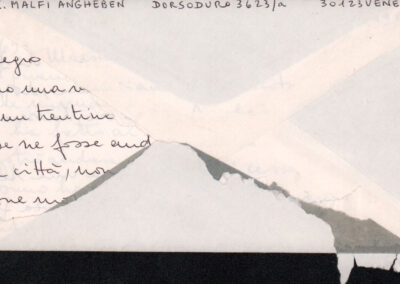 . MALFI ANGHEBEN DORSODURO 3623/a 30123 VENE
egro
un trentino
se ne fosse and
città, non